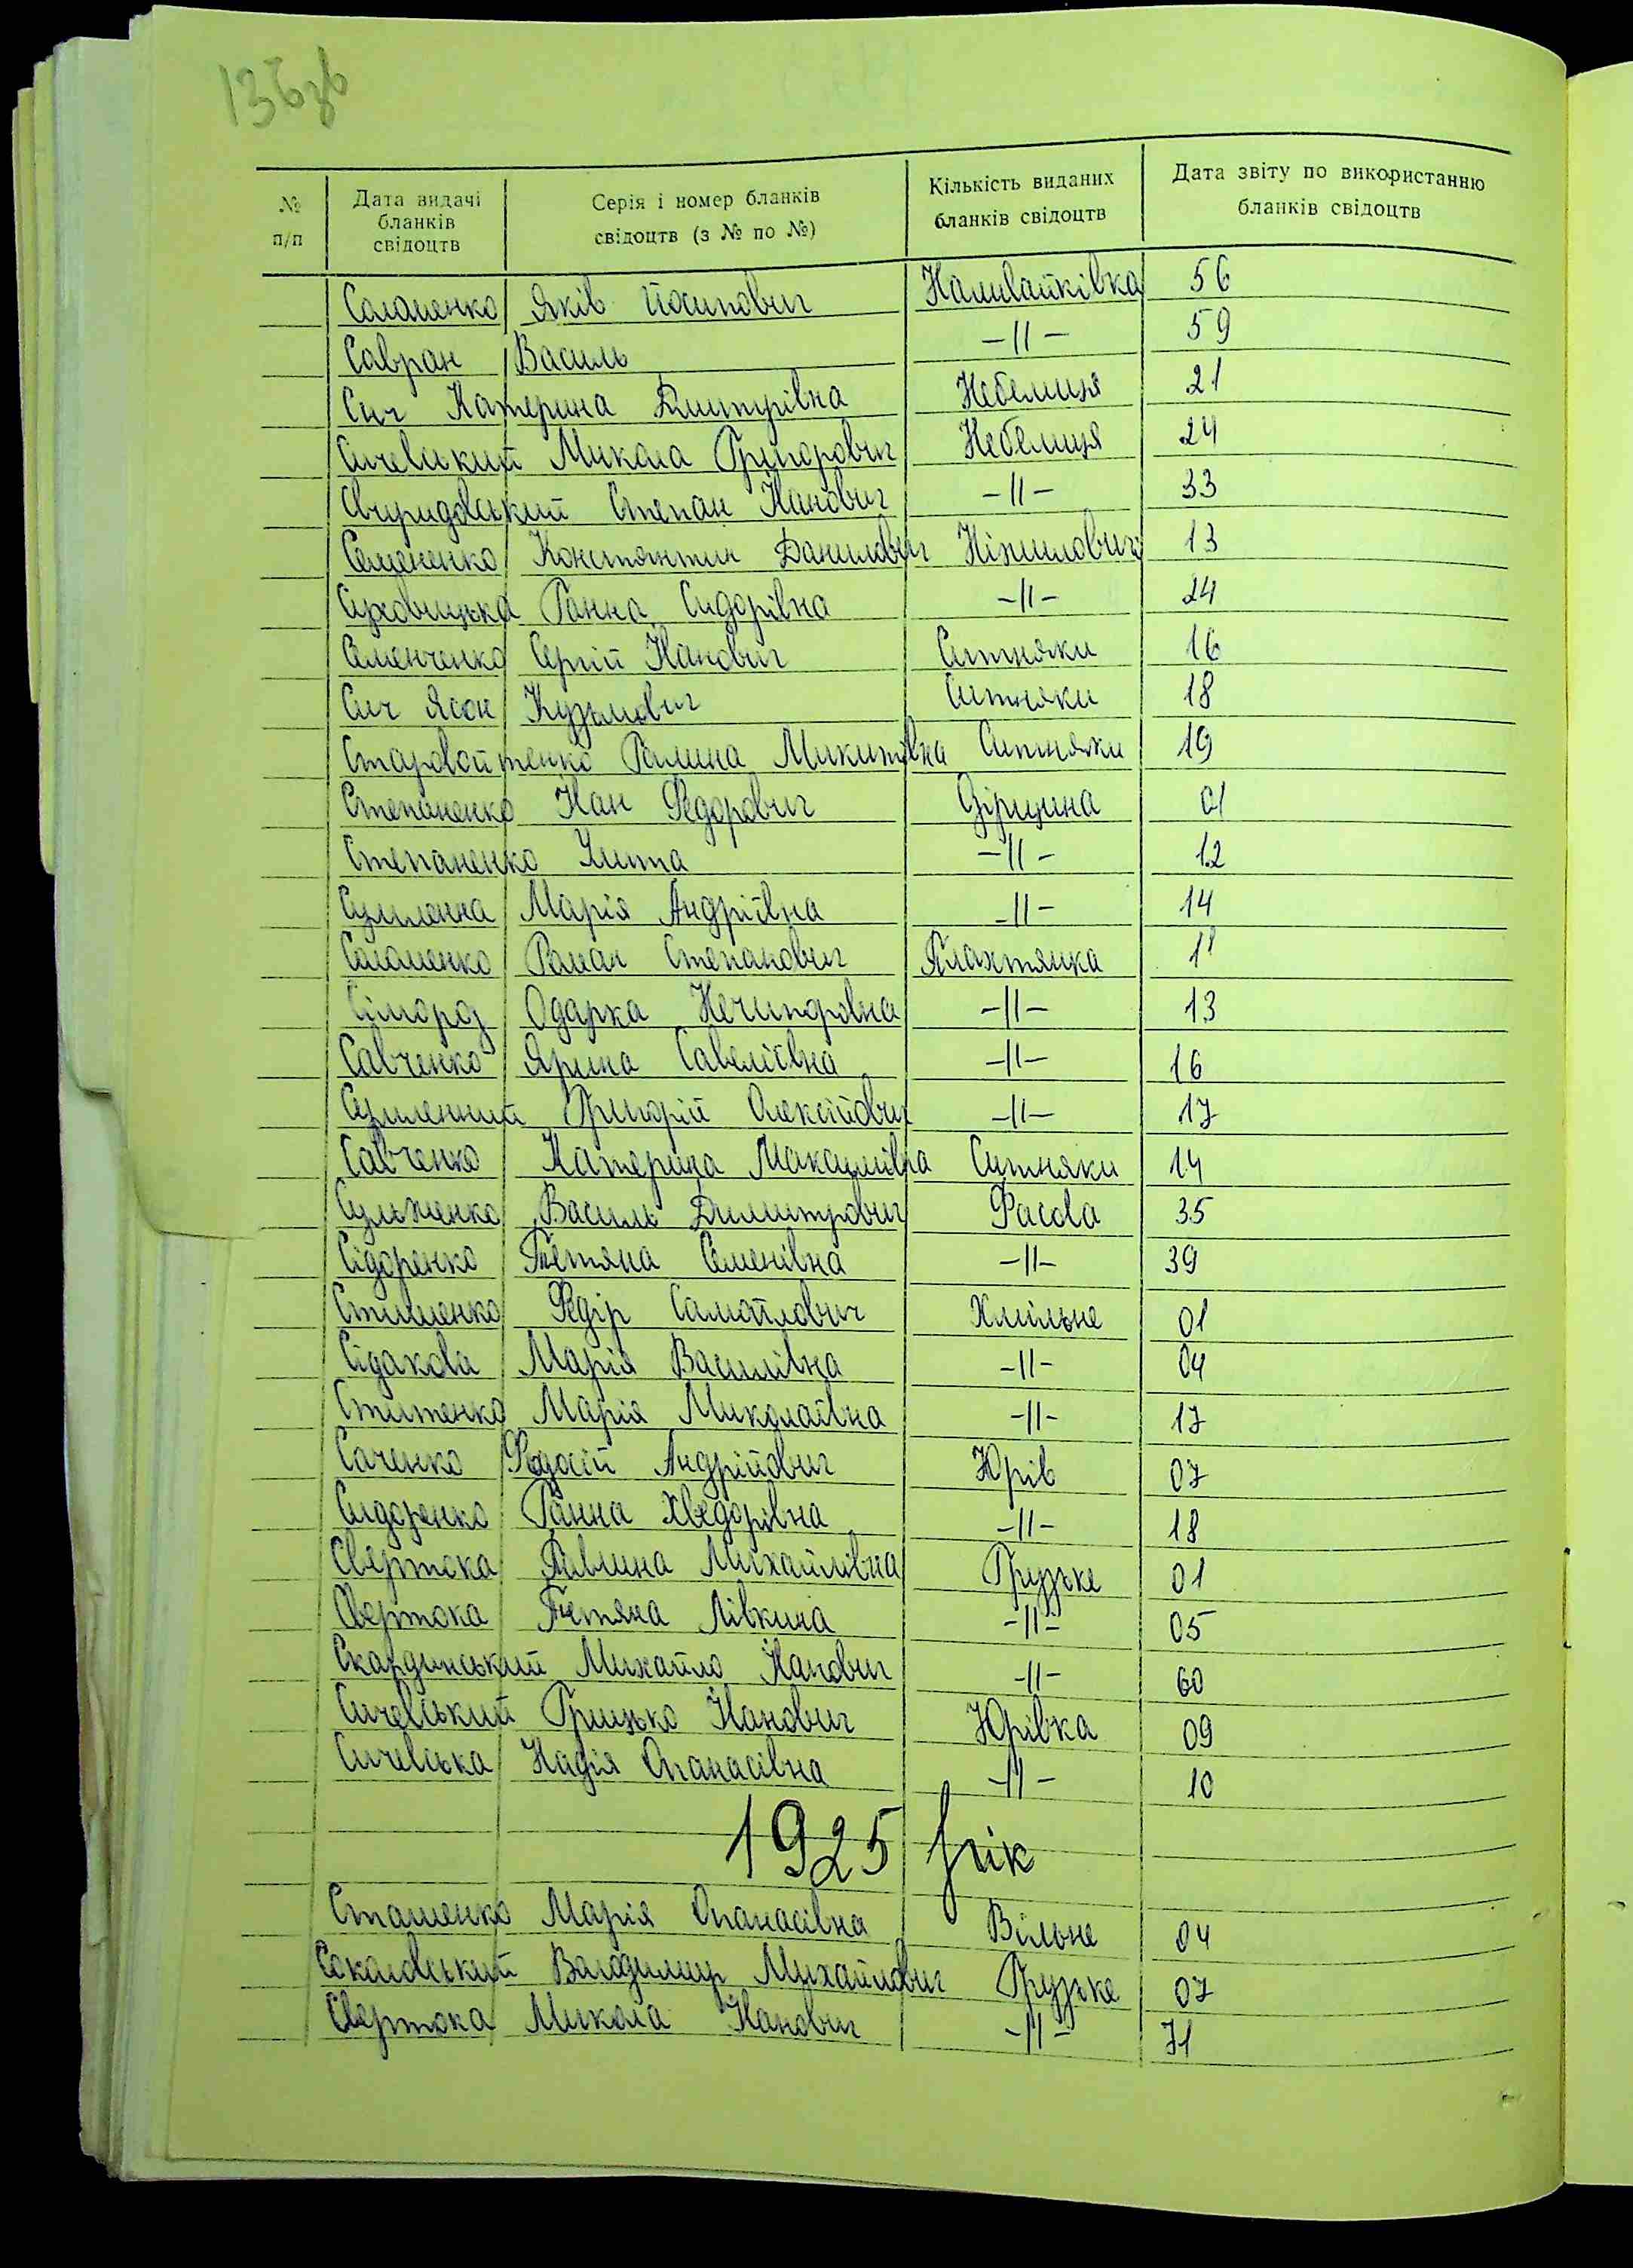 136зв
№ п/п Дата видачі бланків свідоцтв Серія і номер бланків свідоцтв (з № по №) Кількість виданих бланків свідоцтв Дата звіту по використанню бланків свідоцтв
Соломенко Яків Йосипович Наливайківка 56
Савран Василь -||- 59
Сич Катерина Дмитрівна Небелиця 21
Сичевський Микола Григорович Небелиця 24
Свиридовський Степан Іванович -||- 33
Семененко Константин Данилович Ніжиловичі 13
Суховицька Ганна Сидорівна -||- 24
Семенченко Сергій Іванович Ситняки 16
Сич Ясон Кузьмович Ситняки 18
Старовойтенко Галина Микитівна Ситняки 19
Степаненко Іван Федорович 01
Степаненко Улита -||- 12
Марія Андріївна -||- 14
Соломенко Роман Степанович Плахтянка 11
Сімороз Одарка Нечипорівна -||- 13
Савченко Ярина Савеліївна -||- 16
Григорій Олексійович -||- 17
Савченко Катерина Максимівна Ситняки 14
Сульженко Василь Дилитрович Фасова 35
Сідоренко Тетяна Семенівна -||- 39
Федір Самойлович Хмільне 01
Сідакова Марія Василівна -||- 04
Марія Миколаївна -||- 17
Саченко Федосій Андрійович Юрів 07
Сидоренко Ганна Хведорівна -||- 18
Свертока Павлина Михайлівна Грузьке 01
Свертока Тетяна Лівкина -||- 05
Скардинський Михайло Іванович -||- 60
Сичевський Грицько Іванович Юрівка 09
Сичевська Надія Опанасівна -||- 10
1925 рік
Сташенко Марія Опанасівна Вільне 04
Соколовський Володимир Михайлович Грузьке 07
Свертока Микола Іванович -||- 71